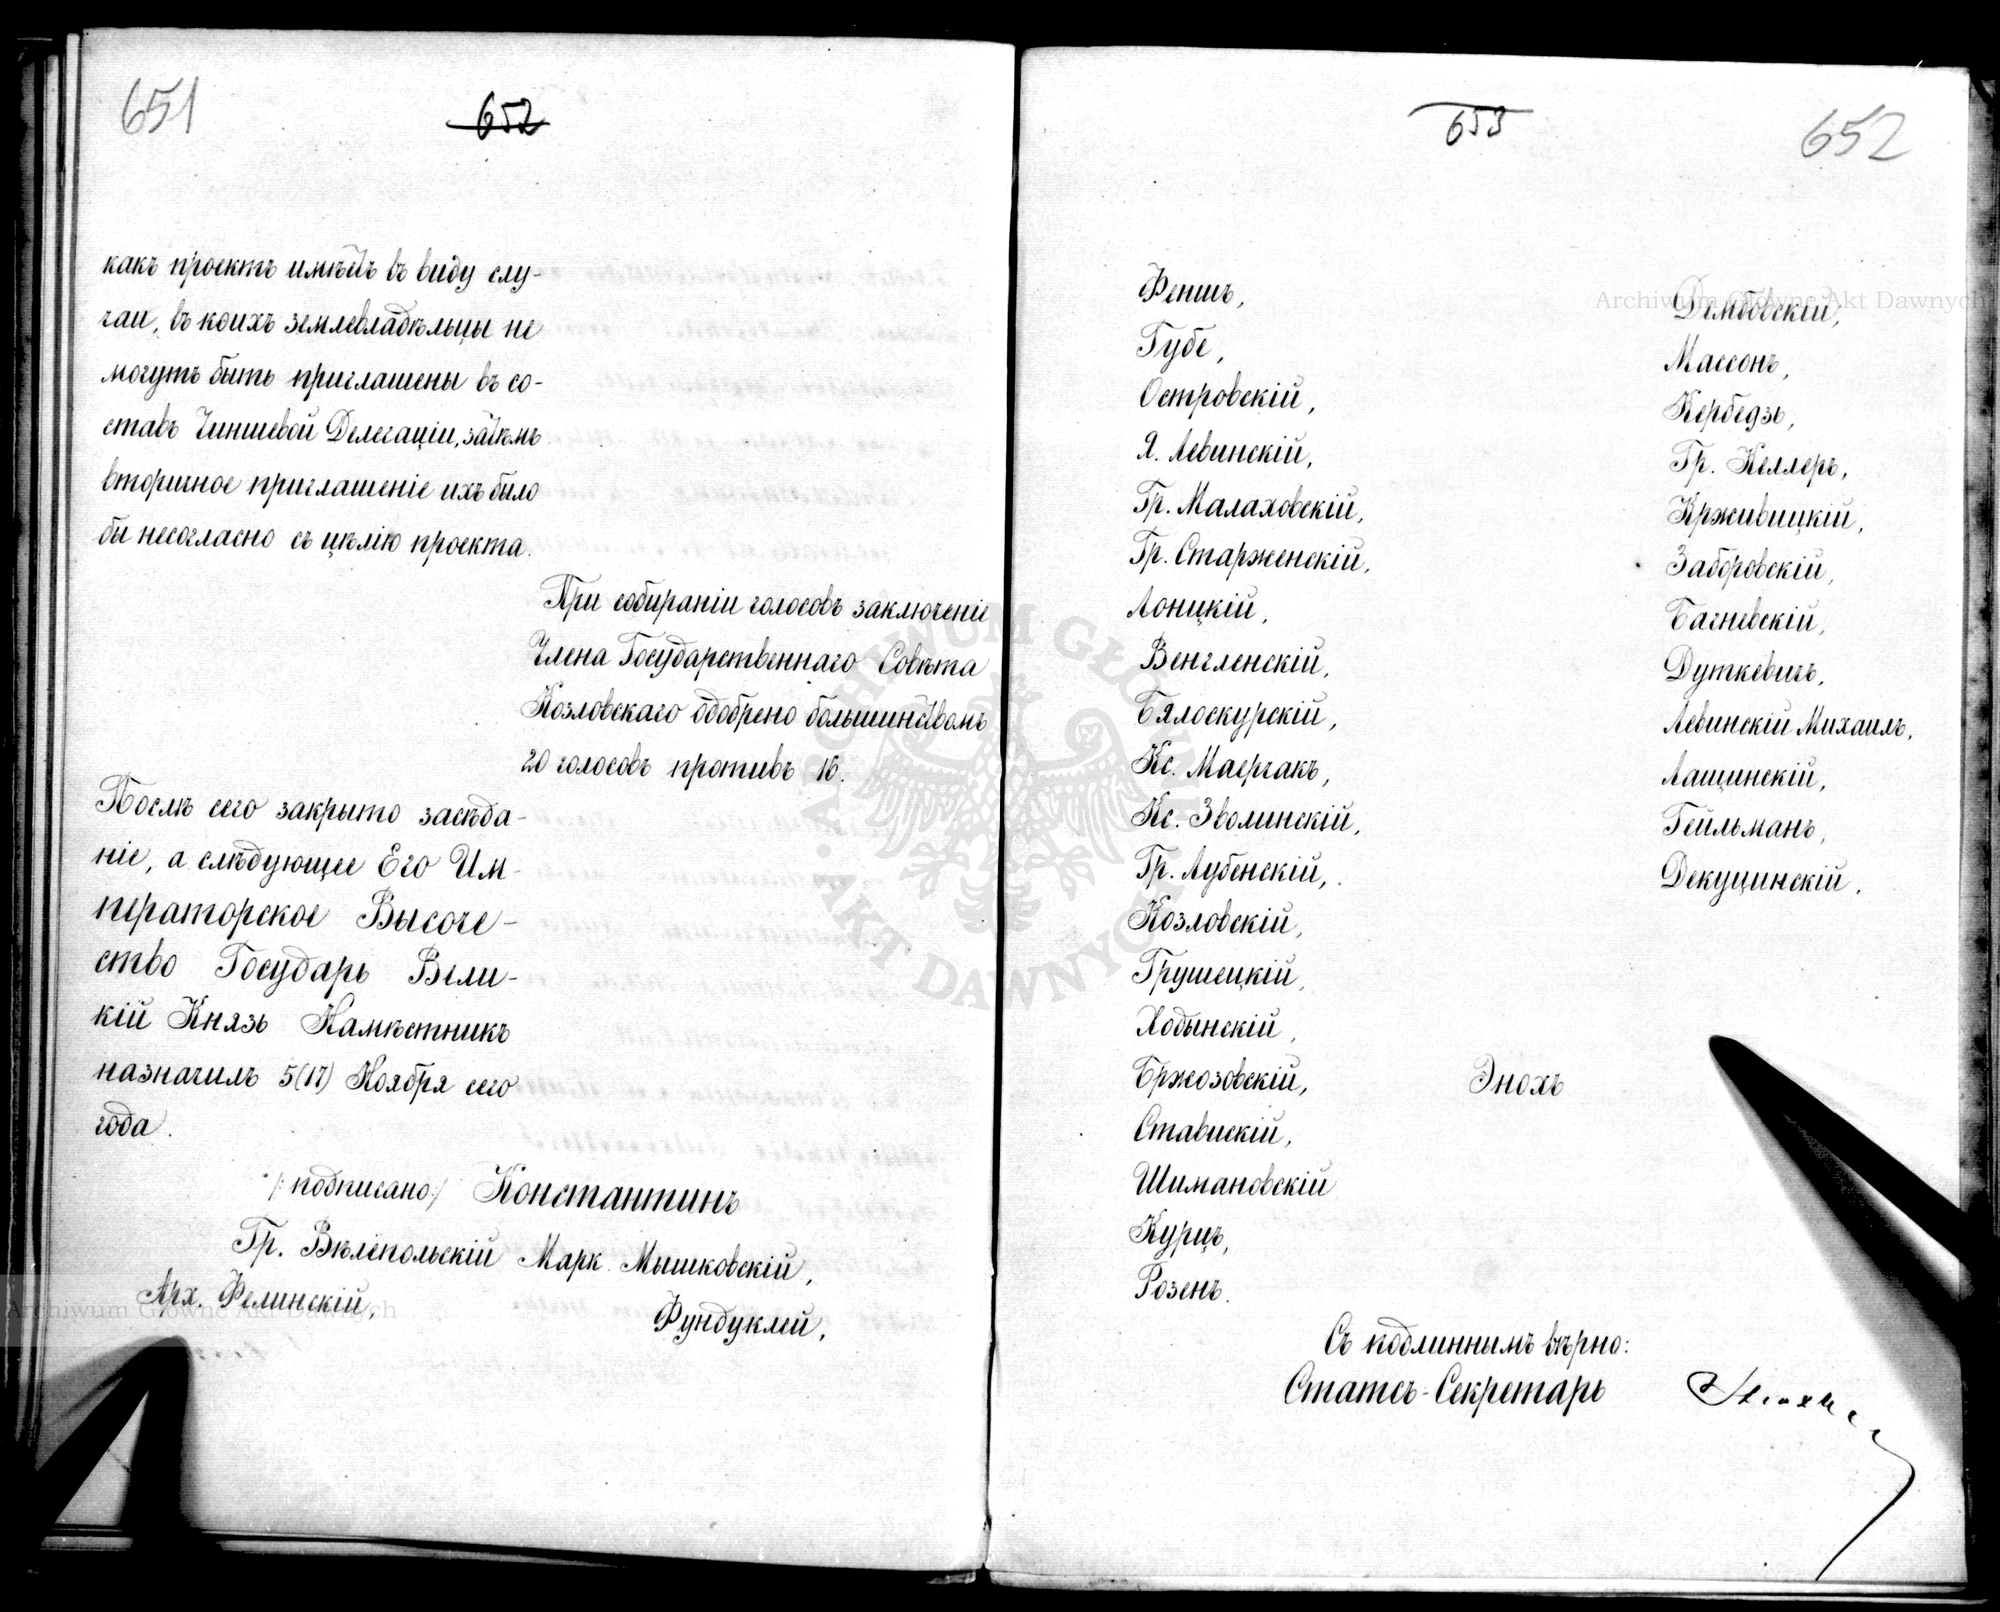 651
652
какъ проектъ имѣетъ въ виду слу-
чаи, въ коихъ землевладѣльцы не
могутъ быть приглашены въ со-
ставъ Чиншевой Делегаціи, затѣмъ
вторичное приглашеніе ихъ было
бы несогласно съ цѣлію проекта.
При собираніи голосовъ заключеніе
Члена Государственнаго Совѣта
Козловскаго одобрено большинствомъ
20 голосовъ противъ 16.
Послѣ сего закрыто засѣда-
ніе, а слѣдующее Его Им-
ператорское Высоче-
ство Государь Вели-
кій Князь Намѣстникъ
назначилъ 5(17) Ноября сего
года.
/:подписано:/ Константинъ
Гр. Вѣлёпольскій Марк. Мышковскій,
Арх. Фелинскій,
Фундуклей,
653
652
Феншъ,
Губе,
Островскій,
Я. Левинскій,
Гр. Малаховскій,
Гр. Старженскій,
Лоницкій,
Венгленскій,
Бялоскурскій,
Кс. Маерчакъ,
Кс. Зволинскій,
Гр. Лубенскій,
Козловскій,
Грушецкій,
Ходынскій,
Бржозовскій,
Ставискій,
Шимановскій
Курцъ,
Розенъ.
Дембовскій,
Массонъ,
Кербедзь,
Гр. Келлеръ,
Крживицкій,
Заборовскій,
Багневскій,
Дуткевичъ,
Левинскій Михаилъ,
Лащинскій,
Гейльманъ,
Декуцинскій.
Энохъ
Съ подлиннымъ вѣрно:
Статсъ-Секретарь
Archiwum Główne Akt Dawnych
Archiwum Główne Akt Dawnych
ARCHIWUM GŁÓWNE · AKT DAWNYCH ·